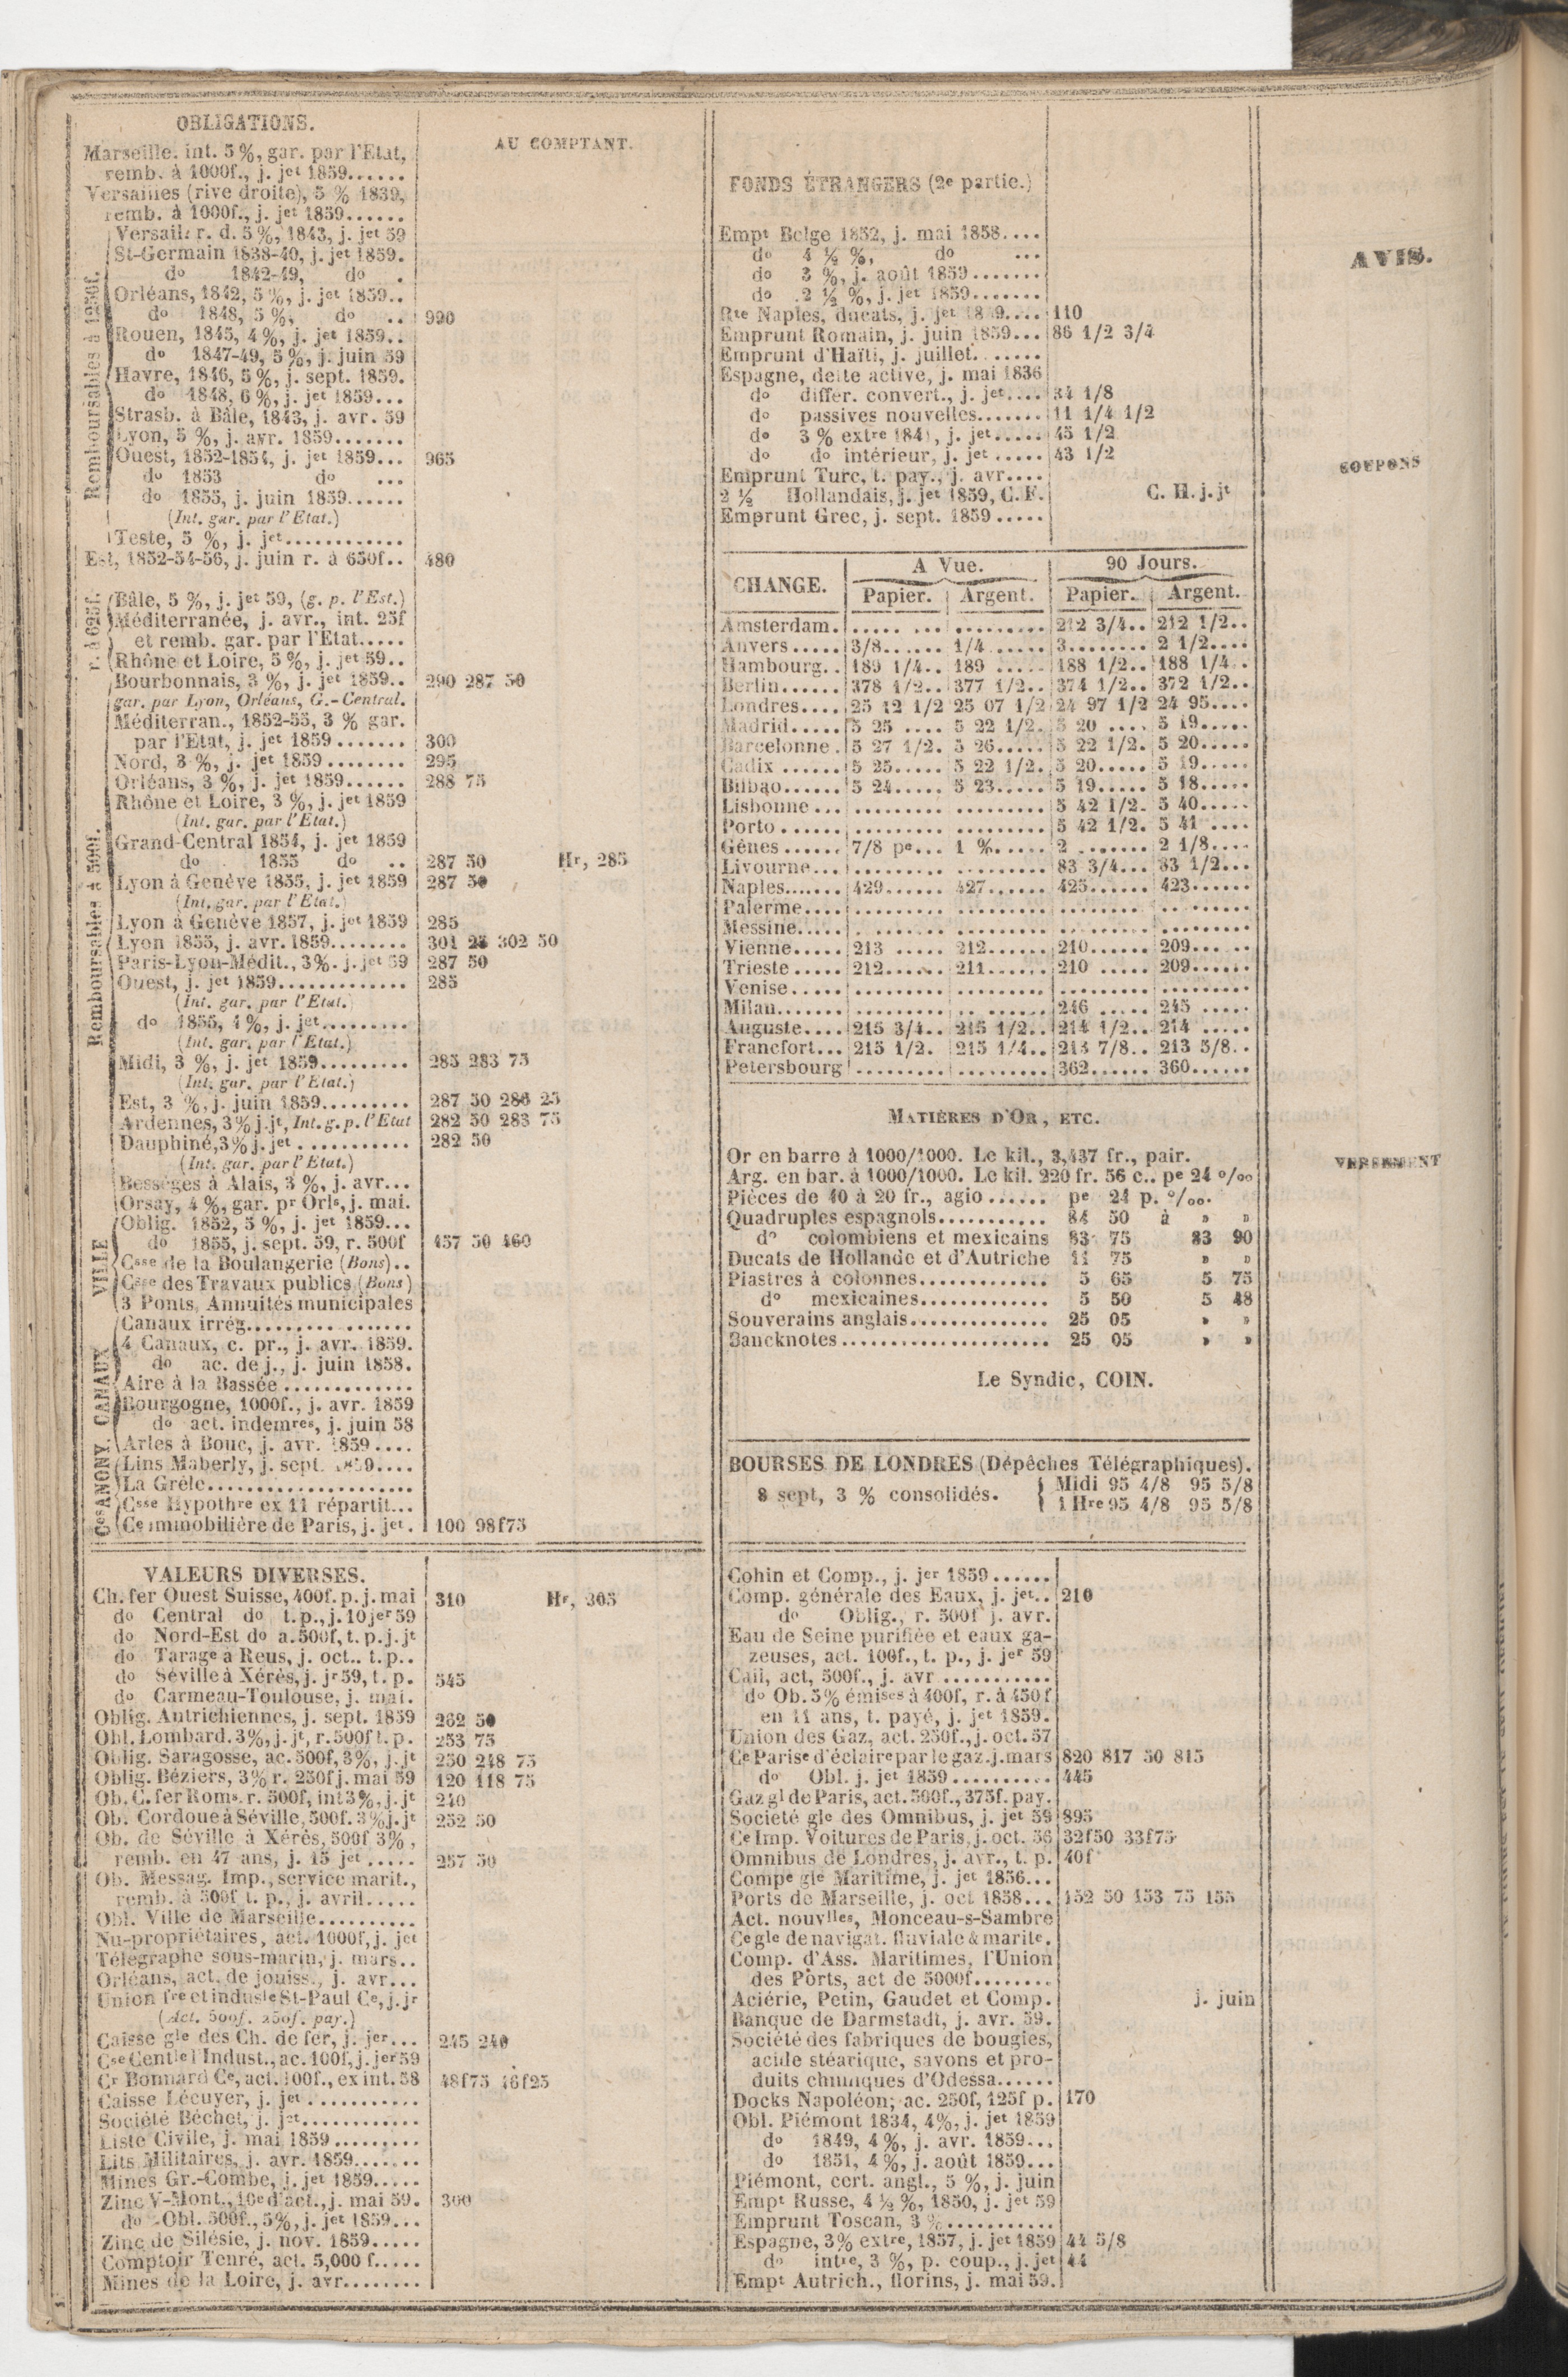 OBLIGATIONS.
AU COMPTANT.
Marseille. int. 5 %, gar. par l'Etat,
remb. à 1000f., j. jet 1859......
Versailles (rive droite), 5 % 1839,
remb. à 1000f., j. jet 1859......
Remboursables à 1250f.
Versaill. r. d. 5 %, 1843, j. jet 59
St-Germain 1838-40, j. jet 1859.
do 1842-49, do .
Orléans, 1842, 5 %, j. jet 1859..
do 1848, 5 %, do .. 990
Rouen, 1845, 4 %, j. jet 1859..
do 1847-49, 5 %, j. juin 59
Havre, 1846, 5 %, j. sept. 1859.
do 1848, 6 %, j. jet 1859...
Strasb. à Bâle, 1843, j. avr. 59
Lyon, 5 %, j. avr. 1859.......
Ouest, 1852-1854, j. jet 1859... 965
do 1853 do ...
do 1855, j. juin 1859......
(Int. gar. par l'Etat.)
Teste, 5 %, j. jet............
Est, 1852-54-56, j. juin r. à 650f.. 480
r. à 625f.
Bâle, 5 %, j. jet 59, (g. p. l'Est.)
Méditerranée, j. avr., int. 25f
et remb. gar. par l'Etat.....
Rhône et Loire, 5 %, j. jet 59..
Remboursables à 500f.
Bourbonnais, 3 %, j. jet 1859.. 290 287 50
gar. par Lyon, Orléans, G.-Central.
Méditerran., 1852-55, 3 % gar.
par l'Etat, j. jet 1859....... 300
Nord, 3 %, j. jet 1859........ 295
Orléans, 3 %, j. jet 1859...... 288 75
Rhône et Loire, 3 %, j. jet 1859
(Int. gar. par l'Etat.)
Grand-Central 1854, j. jet 1859
do 1855 do .. 287 50 Hr, 285
Lyon à Genève 1855, j. jet 1859 287 50
(Int. gar. par l'Etat.)
Lyon à Genève 1857, j. jet 1859 285
Lyon 1855, j. avr. 1859........ 301 25 302 50
Paris-Lyon-Médit., 3%. j. jet 59 287 50
Ouest, j. jet 1859............. 285
(Int. gar. par l'Etat.)
do 1855, 4 %, j. jet.........
(Int. gar. par l'Etat.)
Midi, 3 %, j. jet 1859......... 285 283 75
(Int. gar. par l'Etat.)
Est, 3 %, j. juin 1859......... 287 50 286 25
Ardennes, 3% j. jt, Int. g. p. l'Etat 282 50 283 75
Dauphiné, 3% j. jet........... 282 50
(Int. gar. par l'Etat.)
Bességes à Alais, 3 %, j. avr...
Orsay, 4 %, gar. pr Orls, j. mai.
VILLE
Oblig. 1852, 5 %, j. jet 1859...
do 1855, j. sept. 59, r. 500f 457 50 460
Csse de la Boulangerie (Bons)..
Csse des Travaux publics (Bons)
3 Ponts, Annuités municipales
CANAUX
Canaux irrég................
4 Canaux, c. pr., j. avr. 1859.
do ac. de j., j. juin 1858.
Aire à la Bassée.............
Bourgogne, 1000f., j. avr. 1859
do act. indemres, j. juin 58
Arles à Bouc, j. avr. 1859....
Ces ANONY.
Lins Maberly, j. sept. 1859....
La Grêle.....................
Csse Hypothre ex 11 répartit...
Ce immobilière de Paris, j. jet. 100 98f75
VALEURS DIVERSES.
Ch. fer Ouest Suisse, 400f. p. j. mai 310 Hr, 305
do Central do t. p., j. 10 jer 59
do Nord-Est do a. 500f, t. p. j. jt
do Tarage à Reus, j. oct.. t. p..
do Séville à Xérès, j. jr 59, t. p. 545
do Carmeau-Toulouse, j. mai.
Oblig. Autrichiennes, j. sept. 1859 262 50
Obl. Lombard. 3%, j. jt, r. 500f t. p. 253 75
Oblig. Saragosse, ac. 500f, 3%, j. jt 250 248 75
Oblig. Béziers, 3% r. 250f j. mai 59 120 118 75
Ob. C. fer Roms. r. 500f, int 3%, j. jt 240
Ob. Cordoue à Séville, 500f. 3% j. jt 252 50
Ob. de Séville à Xérès, 500f 3%,
remb. en 47 ans, j. 15 jet..... 257 50
Ob. Messag. Imp., service marit.,
remb. à 500f t. p., j. avril.....
Obl. Ville de Marseille..........
Nu-propriétaires, act. 1000f, j. jet
Télégraphe sous-marin, j. mars..
Orléans, act. de jouiss., j. avr...
Union fre et indusle St-Paul Ce, j. jr
(Act. 500f. 250f. pay.)
Caisse gle des Ch. de fer, j. jer... 245 240
Cse Centle l'Indust., ac. 100f, j. jer 59
Cr Bonnard Ce, act. 100f., ex int. 58 48f75 46f25
Caisse Lécuyer, j. jet...........
Société Béchet, j. jet............
Liste Civile, j. mai 1859.........
Lits Militaires, j. avr. 1859.......
Mines Gr.-Combe, j. jet 1859.....
Zinc V-Mont., 10e d'act., j. mai 59. 300
do Obl. 500f., 5%, j. jet 1859...
Zinc de Silésie, j. nov. 1859.....
Comptoir Tenré, act. 5,000 f.....
Mines de la Loire, j. avr........
FONDS ÉTRANGERS (2e partie.)
Empt Belge 1852, j. mai 1858....
do 4 ½ %, do ...
do 3 %, j. août 1859.......
do 2 ½ %, j. jet 1859.......
Rte Naples, ducats, j. jet 1859.... 110
Emprunt Romain, j. juin 1859... 86 1/2 3/4
Emprunt d'Haïti, j. juillet.......
Espagne, dette active, j. mai 1836
do differ. convert., j. jet.... 34 1/8
do passives nouvelles....... 11 1/4 1/2
do 3 % extre 1841, j. jet..... 45 1/2
do do intérieur, j. jet..... 43 1/2
Emprunt Turc, t. pay., j. avr....
2 ½ Hollandais, j. jet 1859, C. F. C. H. j. jt
Emprunt Grec, j. sept. 1859.....
CHANGE. A Vue. 90 Jours.
Papier. Argent. Papier. Argent.
Amsterdam. ..... ... ......... 212 3/4.. 212 1/2..
Anvers..... 3/8...... 1/4...... 3........ 2 1/2....
Hambourg.. 189 1/4.. 189 ..... 188 1/2.. 188 1/4..
Berlin...... 378 1/2.. 377 1/2.. 374 1/2.. 372 1/2..
Londres.... 25 12 1/2 25 07 1/2 24 97 1/2 24 95....
Madrid..... 5 25 .... 5 22 1/2. 5 20 .... 5 19.....
Barcelonne. 5 27 1/2. 5 26..... 5 22 1/2. 5 20.....
Cadix...... 5 25..... 5 22 1/2. 5 20..... 5 19.....
Bilbao...... 5 24..... 5 23..... 5 19..... 5 18.....
Lisbonne... ......... ......... 5 42 1/2. 5 40.....
Porto...... ......... ......... 5 42 1/2. 5 41 ....
Gênes...... 7/8 pe... 1 %..... 2 ....... 2 1/8....
Livourne... ......... ......... 83 3/4... 83 1/2...
Naples....... 429...... 427...... 425...... 423......
Palerme.... ......... ......... ........ .........
Messine..... ......... ......... ......... .........
Vienne..... 213 ..... 212...... 210...... 209......
Trieste..... 212...... 211...... 210 ..... 209......
Venise..... ......... ......... ......... .........
Milan....... ......... ......... 246 ..... 245 .....
Auguste.... 215 3/4.. 215 1/2.. 214 1/2.. 214 .....
Francfort... 215 1/2. 215 1/4.. 213 7/8.. 213 5/8..
Petersbourg ......... ......... 362...... 360......
MATIÈRES D'OR, ETC.
Or en barre à 1000/1000. Le kil., 3,437 fr., pair.
Arg. en bar. à 1000/1000. Le kil. 220 fr. 56 c.. pe 24 o/oo
Pièces de 40 à 20 fr., agio...... pe 24 p. o/oo.
Quadruples espagnols........... 84 50 à » »
do colombiens et mexicains 83 75 83 90
Ducats de Hollande et d'Autriche 11 75 » »
Piastres à colonnes............. 5 65 5 75
do mexicaines............. 5 50 5 48
Souverains anglais.............. 25 05 » »
Bancknotes..................... 25 05 » »
Le Syndic, COIN.
BOURSES DE LONDRES (Dépêches Télégraphiques).
8 sept, 3 % consolidés. Midi 95 4/8 95 5/8
1 Hre 95 4/8 95 5/8
Cohin et Comp., j. jer 1859......
Comp. générale des Eaux, j. jet.. 210
do Oblig., r. 500f j. avr.
Eau de Seine purifiée et eaux ga-
zeuses, act. 100f., t. p., j. jer 59
Cail, act, 500f., j. avr...........
do Ob. 5% émises à 400f, r. à 450f
en 11 ans, t. payé, j. jet 1859.
Union des Gaz, act. 250f., j. oct. 57
Ce Parise d'éclaire par le gaz. j. mars 820 817 50 815
do Obl. j. jet 1859.......... 445
Gaz gl de Paris, act. 500f., 375f. pay.
Société gle des Omnibus, j. jet 59 895
Ce Imp. Voitures de Paris, j. oct. 56 32f50 33f75
Omnibus de Londres, j. avr., t. p. 40f
Compe gle Maritime, j. jet 1856...
Ports de Marseille, j. oct 1858... 152 50 153 75 155
Act. nouvlles, Monceau-s-Sambre
Ce gle de navigat. fluviale & marite.
Comp. d'Ass. Maritimes, l'Union
des Ports, act de 5000f........
Aciérie, Petin, Gaudet et Comp. j. juin
Banque de Darmstadt, j. avr. 59.
Société des fabriques de bougies,
acide stéarique, savons et pro-
duits chimiques d'Odessa......
Docks Napoléon; ac. 250f, 125f p. 170
Obl. Piémont 1834, 4%, j. jet 1859
do 1849, 4 %, j. avr. 1859...
do 1851, 4 %, j. août 1859...
Piémont, cert. angl., 5 %, j. juin
Empt Russe, 4 ½ %, 1850, j. jet 59
Emprunt Toscan, 3 %...........
Espagne, 3% extre, 1857, j. jet 1859 44 5/8
do intre, 3 %, p. coup., j. jet 44
Empt Autrich., florins, j. mai 59.
AVIS.
COUPONS
VERSEMENT